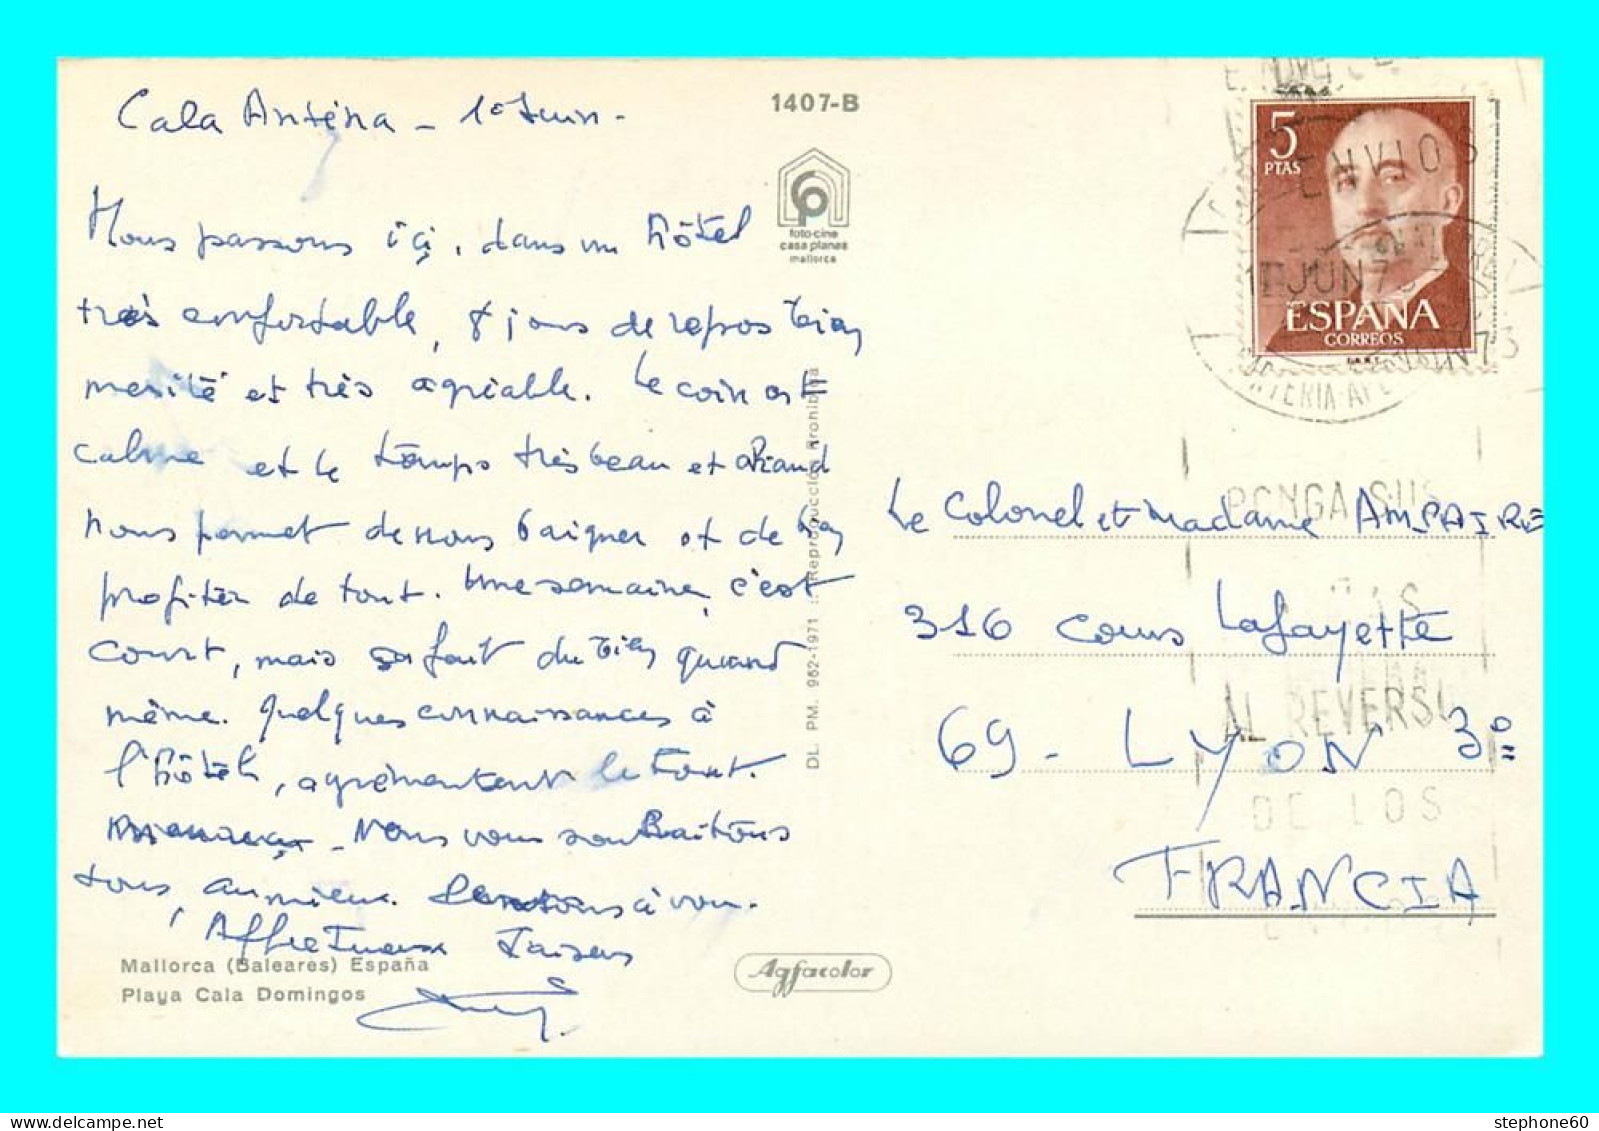 Cala Anténa - 1º Juin -
Nous passons içi, dans un hôtel
très confortable, 8 jours de repos bien
mérité et très agréable. Le coin est
calme et le temps très beau et chaud
nous permet de nous baigner et de bien
profiter de tout. Une semaine, c'est
court, mais ça fait du bien quand
même. Quelques connaissances à
l'hôtel, agrémentent le tout.
- Nous vous souhaitons
tous, au mieux. à vous.
Affectueux baisers
Mallorca (Baleares) España
Playa Cala Domingos
1407-B
foto-cine
casa planas
mallorca
DL. PM. 962-1971 : Reproducción Prohibida
Agfacolor
5
PTAS
ESPAÑA
CORREOS
ENVIOS
JUN 73
PONGA SUS
SEÑAS
AL REVERSO
DE LOS
Le Colonel et Madame AMPAIRE
316 Cours Lafayette
69 - LYON 3º
FRANCIA
stephone60